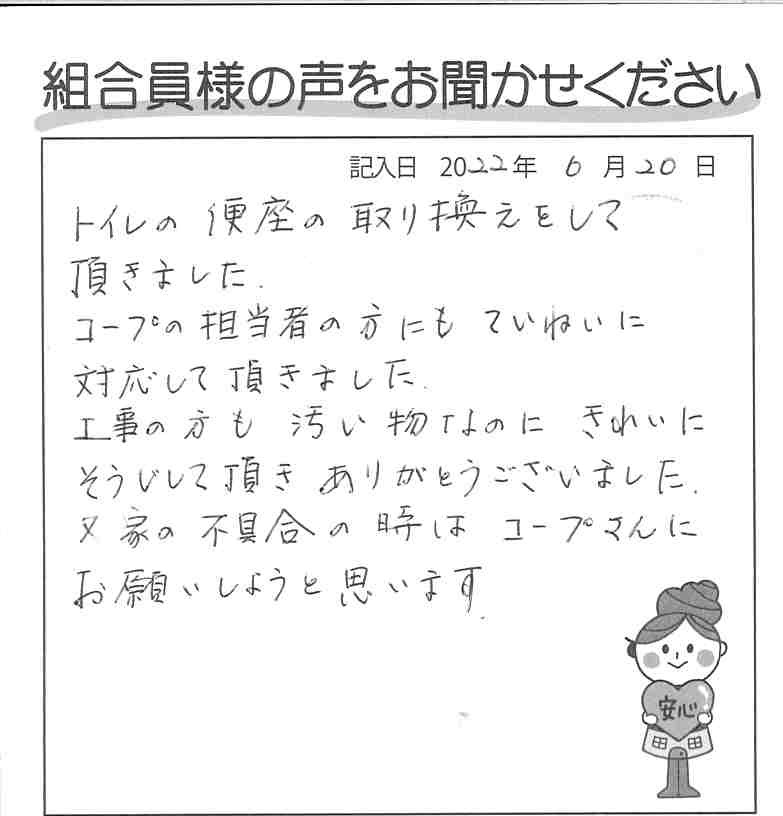 組合員様の声をお聞かせください
記入日 2022年 6月20日
トイレの便座の取り換えをして
頂きました.
コープの担当者の方にも ていねいに
対応して頂きました.
工事の方も 汚い物なのに きれいに
そうじして頂き ありがとうございました.
又家の不具合の時は コープさんに
お願いしようと思います.
安心